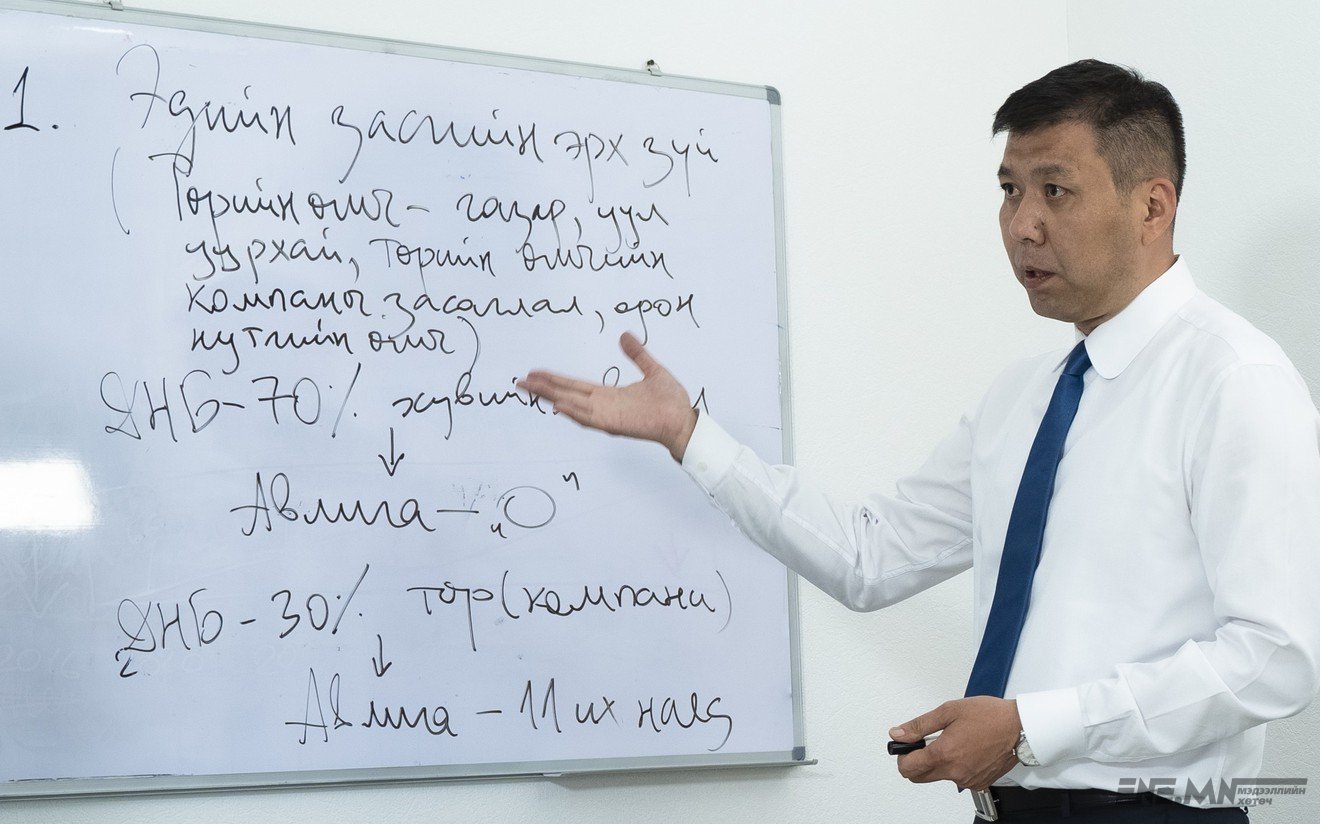 1. Эдийн засгийн эрх зүй
(Төрийн өмч- газар, уул
уурхай, төрийн өмчийн
компаны засаглал, орон
нутгийн өмч)
ДНБ-70% хувийн
↓
Авлига - "О"
ДНБ-30% төр(компани)
↓
Авлига - 11 их наяд
ENE.MN МЭДЭЭЛЛИЙН
ХӨТӨЧ